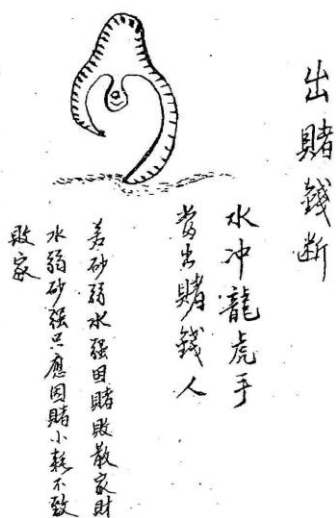 出賭錢断
水冲龍虎手
當出賭錢人
若砂弱水强因賭敗散家財
水弱砂强只應因賭小耗不致
敗家